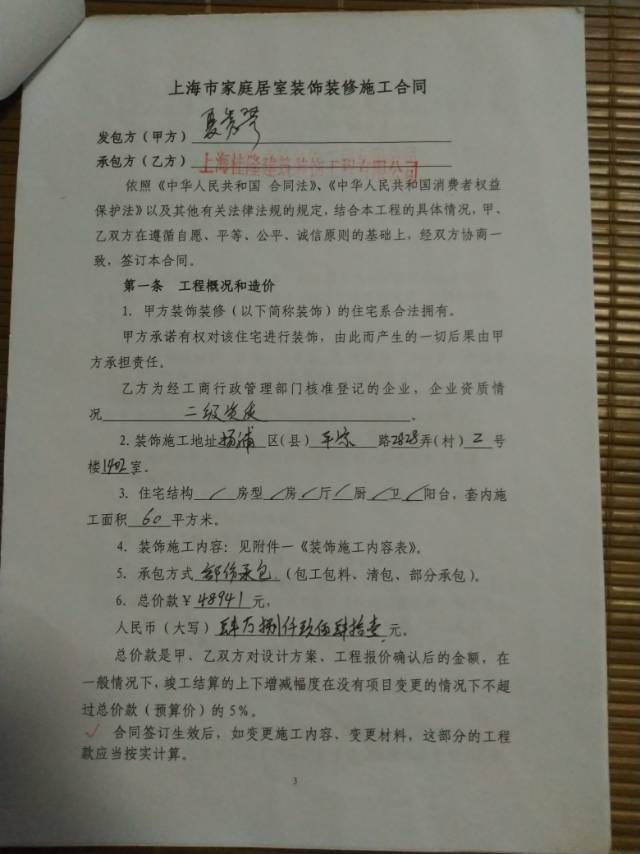 上海市家庭居室装饰装修施工合同
发包方（甲方）夏
承包方（乙方）上海桂隆建筑装饰工程有限公司
依照《中华人民共和国 合同法》、《中华人民共和国消费者权益
保护法》以及其他有关法律法规的规定，结合本工程的具体情况，甲、
乙双方在遵循自愿、平等、公平、诚信原则的基础上，经双方协商一
致，签订本合同。
第一条 工程概况和造价
1. 甲方装饰装修（以下简称装饰）的住宅系合法拥有。
甲方承诺有权对该住宅进行装饰，由此而产生的一切后果由甲
方承担责任。
乙方为经工商行政管理部门核准登记的企业，企业资质情
况 二级资质 。
2. 装饰施工地址杨浦 区(县) 平凉 路2828弄(村) 2 号
楼1402室.
3. 住宅结构 / 房型 / 房 / 厅 / 厨 / 卫 / 阳台，套内施
工面积 60 平方米。
4. 装饰施工内容：见附件一《装饰施工内容表》。
5. 承包方式 部份承包 (包工包料、清包、部分承包)。
6. 总价款￥ 48941 元,
人民币（大写）肆万捌仟玖佰肆拾壹元。
总价款是甲、乙双方对设计方案、工程报价确认后的金额，在
一般情况下，竣工结算的上下增减幅度在没有项目变更的情况下不超
过总价款（预算价）的5%。
✓ 合同签订生效后，如变更施工内容、变更材料，这部分的工程
款应当按实计算。
3